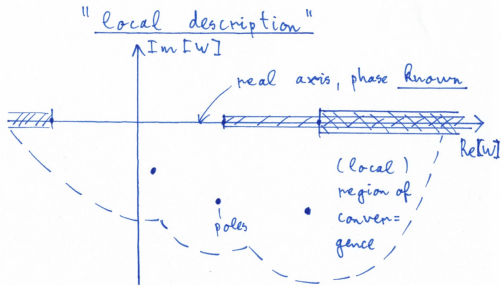 "local description"
Im[W]
real axis, phase known
Re[W]
(local)
region of
conver=
gence
poles